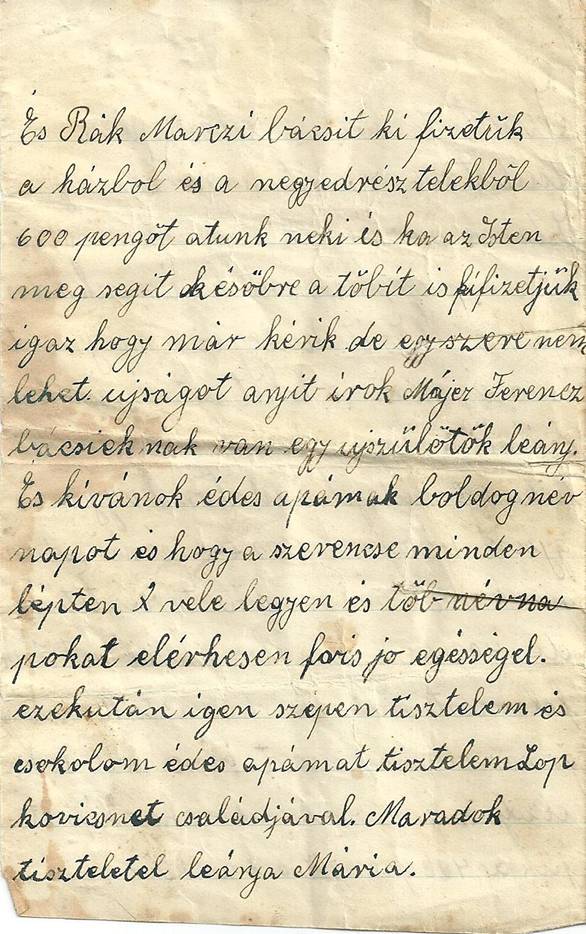 És Rák Marczi bácsit ki fizetűk
a házbol és a negyedrész telekből
600 pengőt atunk neki és ha az Isten
meg segit későbre a tőbít is kifizetjűk
igaz hogy már kérik de egyszere nem
lehet. ujságot anyit irok Májez Ferencz
bácsieknak van egy ujszűlőtők leány.
És kívánok édes apámnak boldog név
napot és hogy a szerencse minden
lépten vele legyen és tőb névna
pokat elérhesen foris jo egésségel.
ezekután igen szépen tisztelem és
csokolom édes apámat tisztelem Lop
kovicsnet családjával. Maradok
tiszteletel leánya Mária.